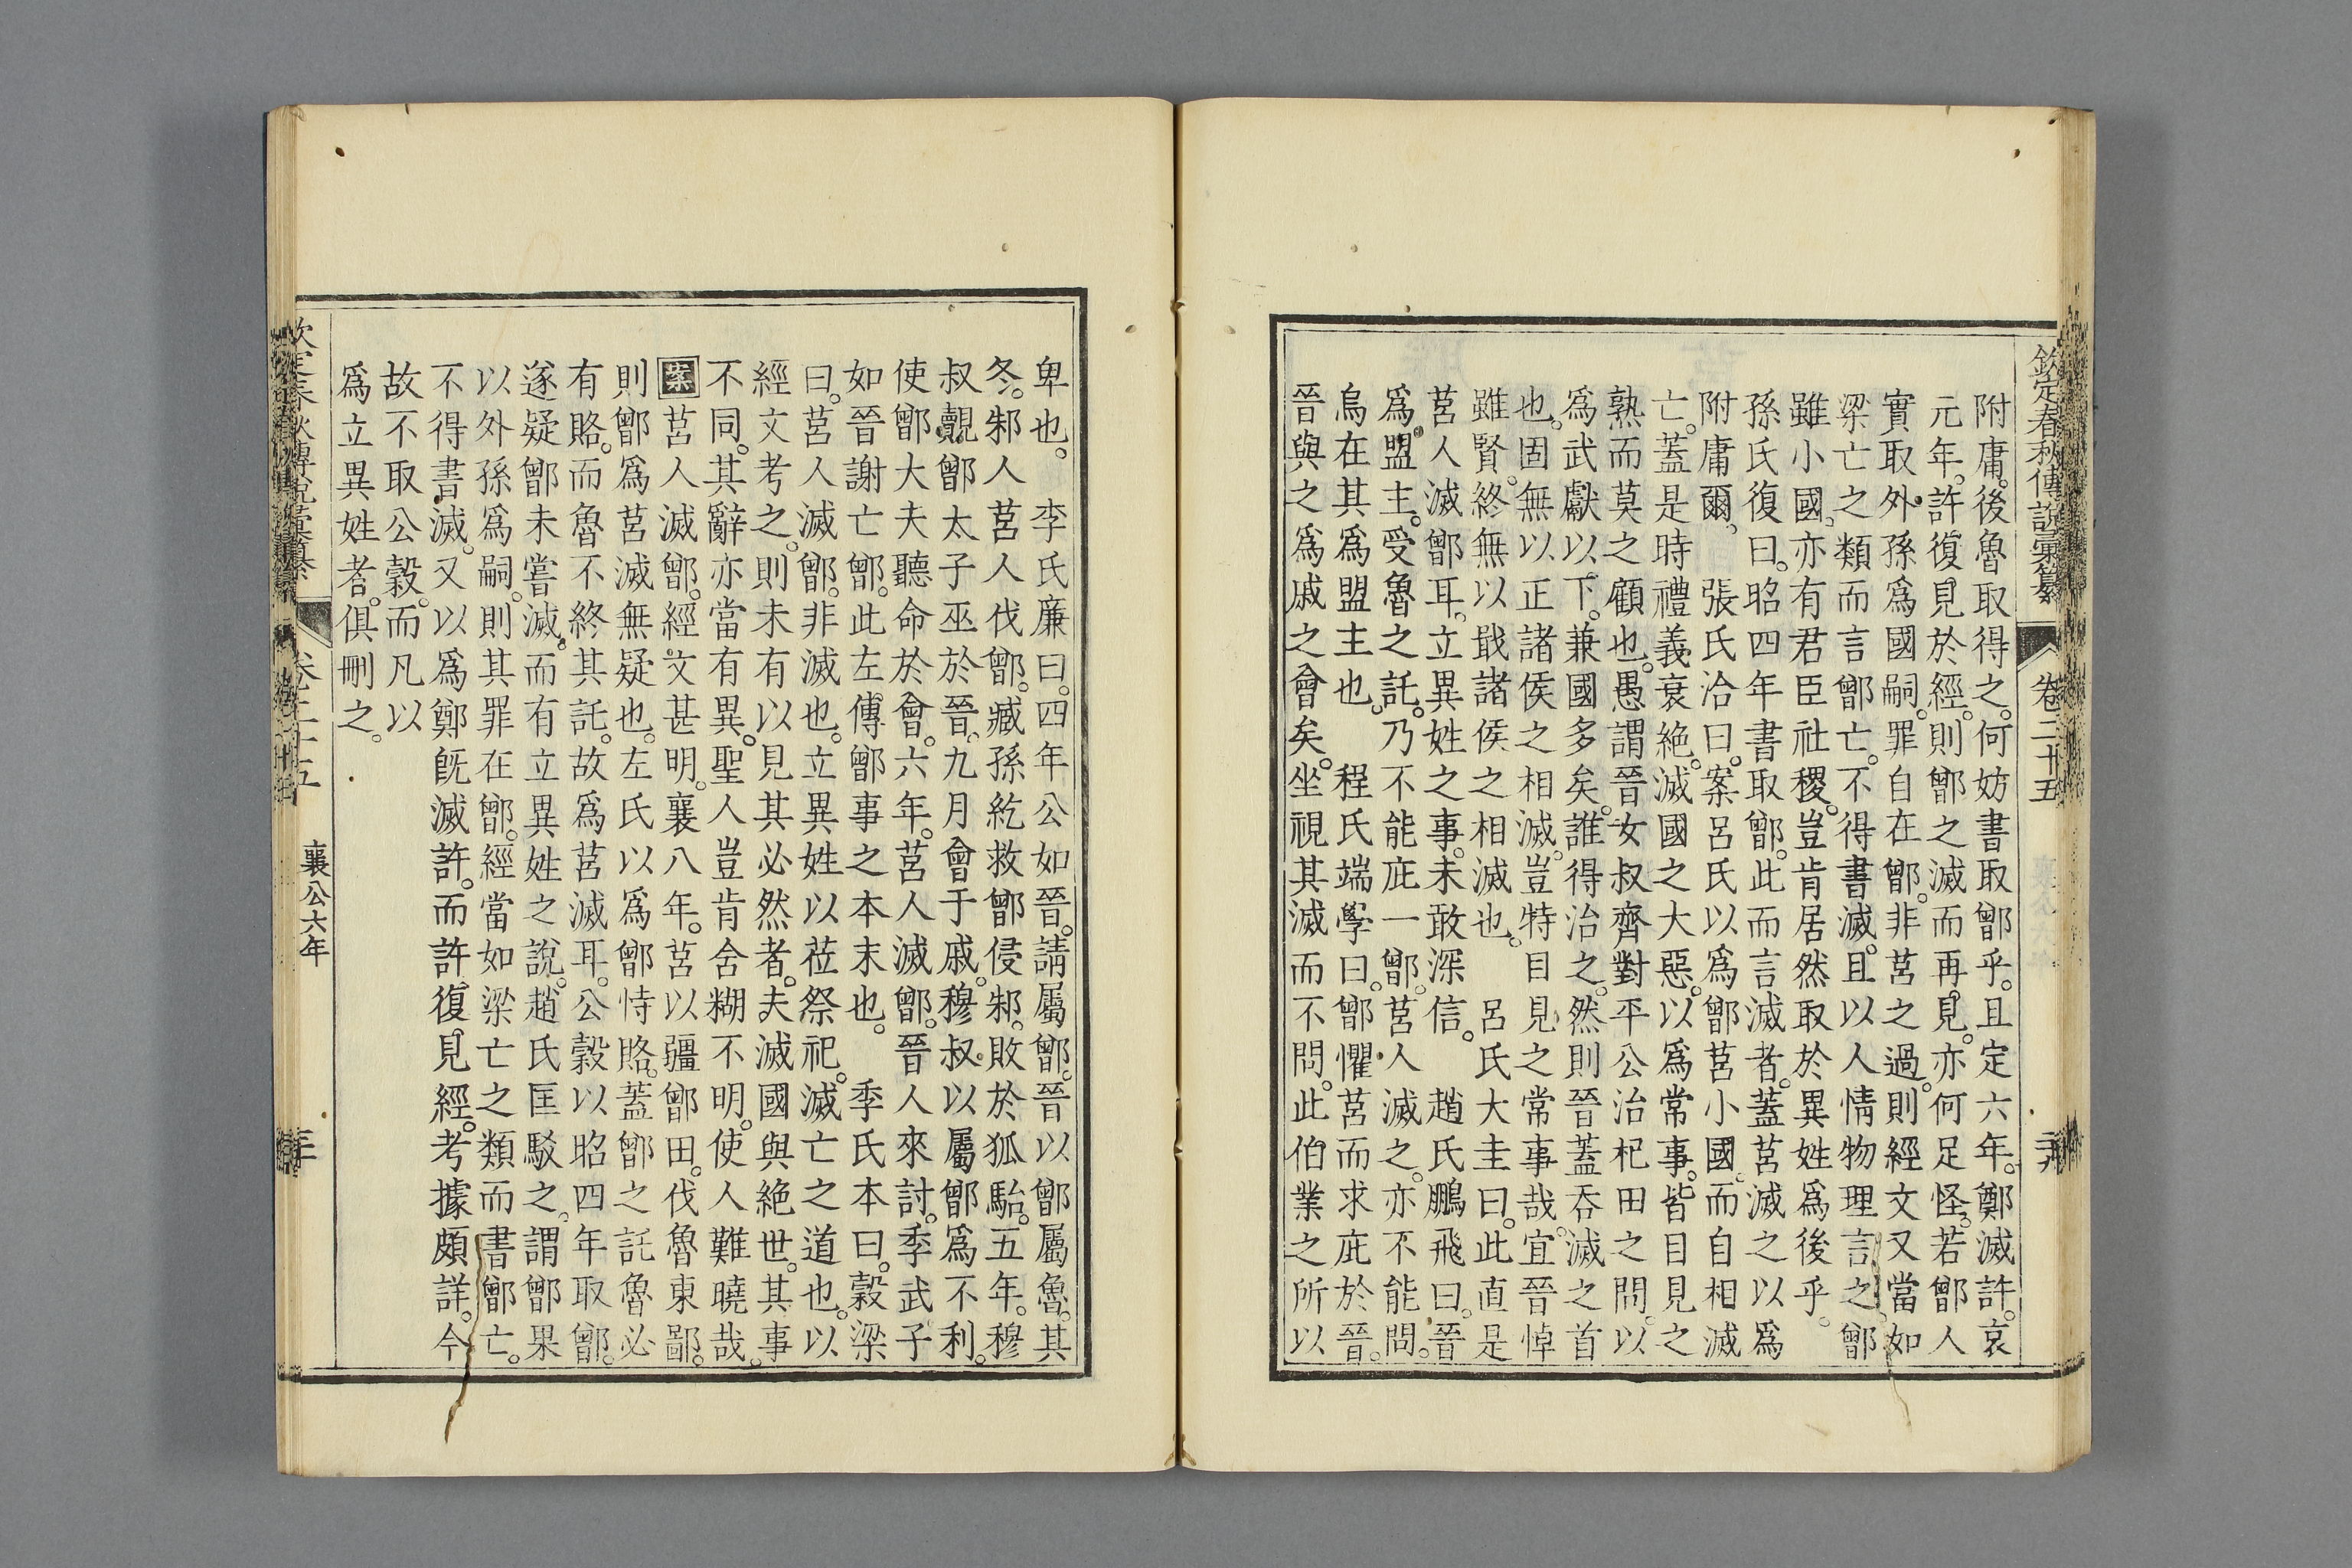 欽定春秋傳說彙纂 卷二十五
附庸。後魯取得之。何妨書取鄫乎。且定六年。鄭滅許。哀
元年。許復見於經。則鄫之滅而再見。亦何足怪。若鄫人
實取外孫爲國嗣。罪自在鄫。非莒之過。則經文又當如
梁亡之類而言鄫亡。不得書滅。且以人情物理言之。鄫
雖小國。亦有君臣社稷。豈肯居然取於異姓爲後乎。
孫氏復曰。昭四年書取鄫。此而言滅者。蓋莒滅之以爲
附庸爾。 張氏洽曰。案呂氏以爲鄫莒小國。而自相滅
亡。蓋是時禮義衰絕。滅國之大惡。以爲常事。皆目見之
熟而莫之顧也。愚謂晉女叔齊對平公治杞田之問。以
爲武獻以下。兼國多矣。誰得治之。然則晉蓋吞滅之首
也。固無以正諸侯之相滅。豈特目見之常事哉。宜晉悼
雖賢。終無以戢諸侯之相滅也。 呂氏大圭曰。此直是
莒人滅鄫耳。立異姓之事。未敢深信。 趙氏鵬飛曰。晉
爲盟主。受魯之託。乃不能庇一鄫。莒人滅之。亦不能問。
烏在其爲盟主也。 程氏端學曰。鄫懼莒而求庇於晉。
晉與之爲戚之會矣。坐視其滅而不問。此伯業之所以
卑也。 李氏廉曰。四年公如晉。請屬鄫。晉以鄫屬魯。其
冬。邾人莒人伐鄫。臧孫紇救鄫侵邾。敗於狐駘。五年。穆
叔覿鄫太子巫於晉。九月會于戚。穆叔以屬鄫爲不利。
使鄫大夫聽命於會。六年。莒人滅鄫。晉人來討。季武子
如晉謝亡鄫。此左傳鄫事之本末也。 季氏本曰。穀梁
曰。莒人滅鄫。非滅也。立異姓以莅祭祀。滅亡之道也。以
經文考之。則未有以見其必然者。夫滅國與絕世。其事
不同。其辭亦當有異。聖人豈肯舍糊不明。使人難曉哉。
案莒人滅鄫。經文甚明。襄八年。莒以疆鄫田。伐魯東鄙。
則鄫爲莒滅無疑也。左氏以爲鄫恃賂。蓋鄫之託魯必
有賂。而魯不終其託。故爲莒滅耳。公穀以昭四年取鄫。
遂疑鄫未嘗滅。而有立異姓之說。趙氏匡駁之。謂鄫果
以外孫爲嗣。則其罪在鄫。經當如梁亡之類而書鄫亡。
不得書滅。又以爲鄭旣滅許。而許復見經。考據頗詳。今
故不取公穀。而凡以
爲立異姓者。俱刪之。
襄公六年